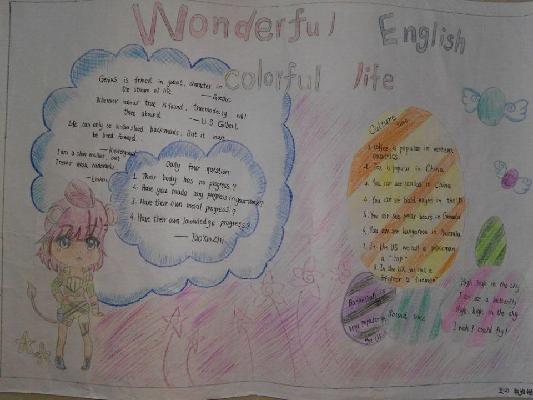 Wonderful English
colorful life
Genius is formed in quiet, character in
the stream of life.
Wherever valour true is found, true modesty will
there abound.
—W.S. Gilbert
Life can only be understood backwards, but it must
be lived forward.
I am a slow walker, but
I never walk backwards.
Daily four question
1. Their body has no progress?
2. Have you made any progress in your study?
3. Have their own moral progress?
4. Have their own knowledge progress?
Culture
1. Coffee is popular in western
countries
2. Tea is popular in China.
3. You can see pandas in China
4. You can see bald eagles in the U
5. You can see polar bears in Canada
6. You can see kangaroos in Australia
7. In the US we call a policeman
a "cop"
8. In the U.K. we call a
High, high in the sky
I can see a butterfly
High, high in the sky
I wish I could fly!